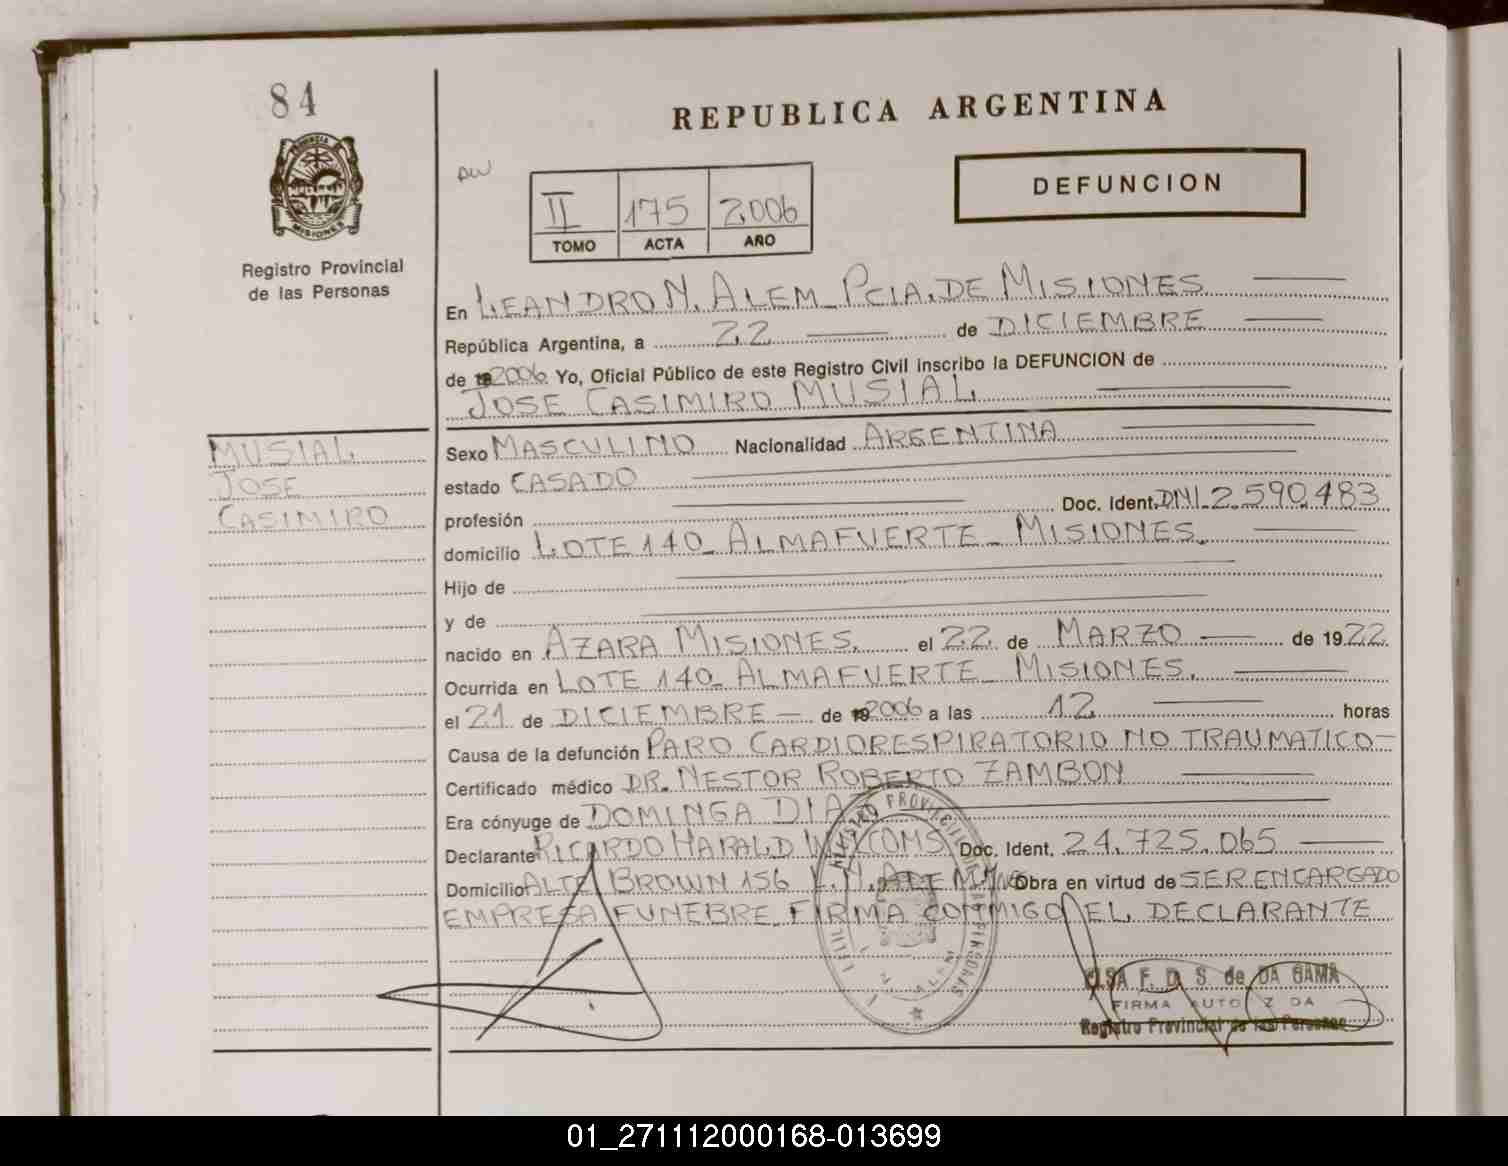 84
REPUBLICA ARGENTINA
PROVINCIA DE
MISIONES
Registro Provincial
de las Personas
DEFUNCION
II 175 2006
TOMO ACTA AÑO
En LEANDRO N. ALEM_ PCIA. DE MISIONES
República Argentina, a 22 de DICIEMBRE
de 2006 Yo, Oficial Público de este Registro Civil inscribo la DEFUNCION de
JOSE CASIMIRO MUSIAL
MUSIAL
JOSE
CASIMIRO
Sexo MASCULINO Nacionalidad ARGENTINA
estado CASADO
profesión Doc. Ident. DNI. 2.590.483
domicilio LOTE 140_ ALMAFUERTE_ MISIONES.
Hijo de
y de
nacido en AZARA MISIONES. el 22 de MARZO de 1922
Ocurrida en LOTE 140_ ALMAFUERTE_ MISIONES.
el 21 de DICIEMBRE de 2006 a las 12 horas
Causa de la defunción PARO CARDIORESPIRATORIO NO TRAUMATICO
Certificado médico DR. NESTOR ROBERTO ZAMBON
Era cónyuge de DOMINGA DIAZ
Declarante RICARDO HARALD Doc. Ident. 24.725.065
Domicilio ALTE BROWN 156 L.N. ALEM Obra en virtud de SER ENCARGADO
EMPRESA FUNEBRE_ FIRMA CONMIGO EL DECLARANTE
ELSA F. D. S. de DA GAMA
FIRMA AUTORIZADA
Registro Provincial de las Personas
01_271112000168-013699